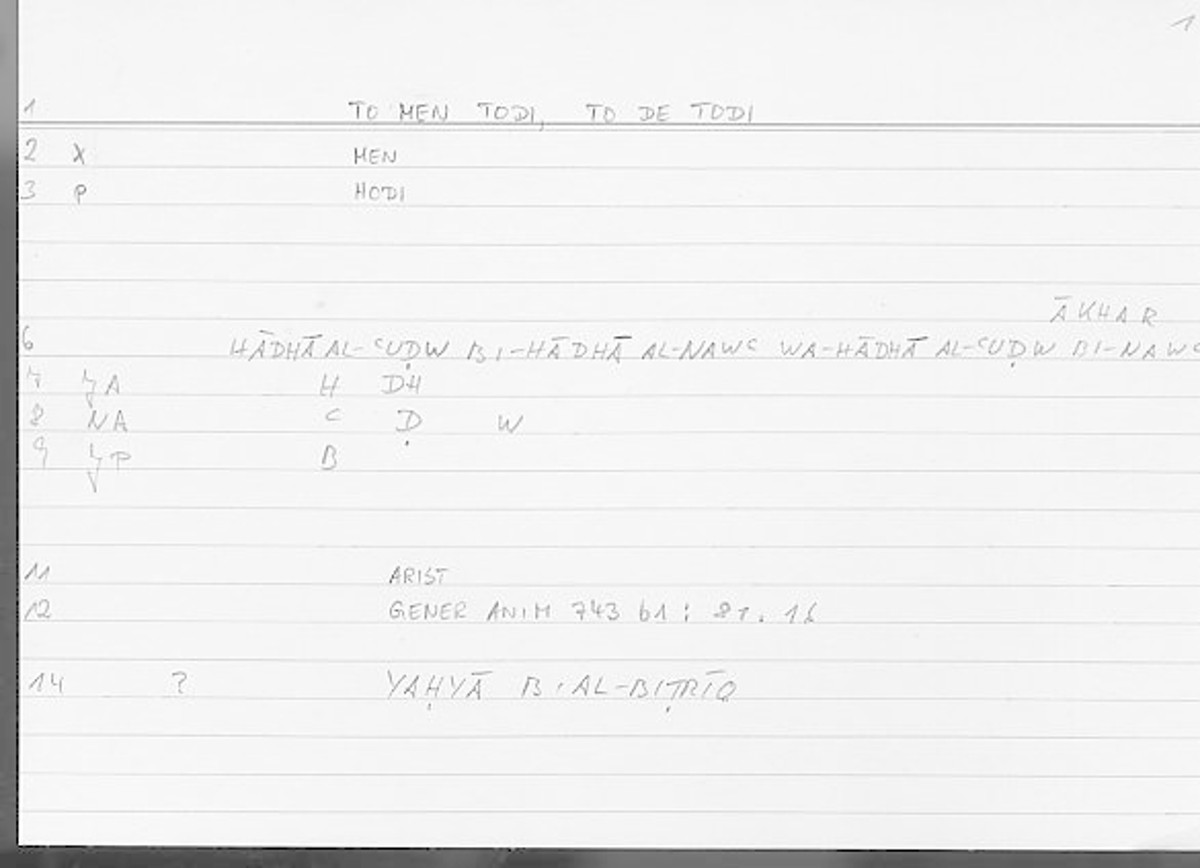 1
1 TO MEN TODI, TO DE TODI
2 X MEN
3 P HODI
ĀKHAR
6 HĀDHĀ AL-ʿUḌW BI-HĀDHĀ AL-NAWʿ WA-HĀDHĀ AL-ʿUḌW BI-NAWʿ
7 A H DH
8 NA ʿ Ḍ W
9 P B
11 ARIST
12 GENER ANIM 743 b1 : 87. 16
14 ? YAḤYĀ B. AL-BIṬRĪQ